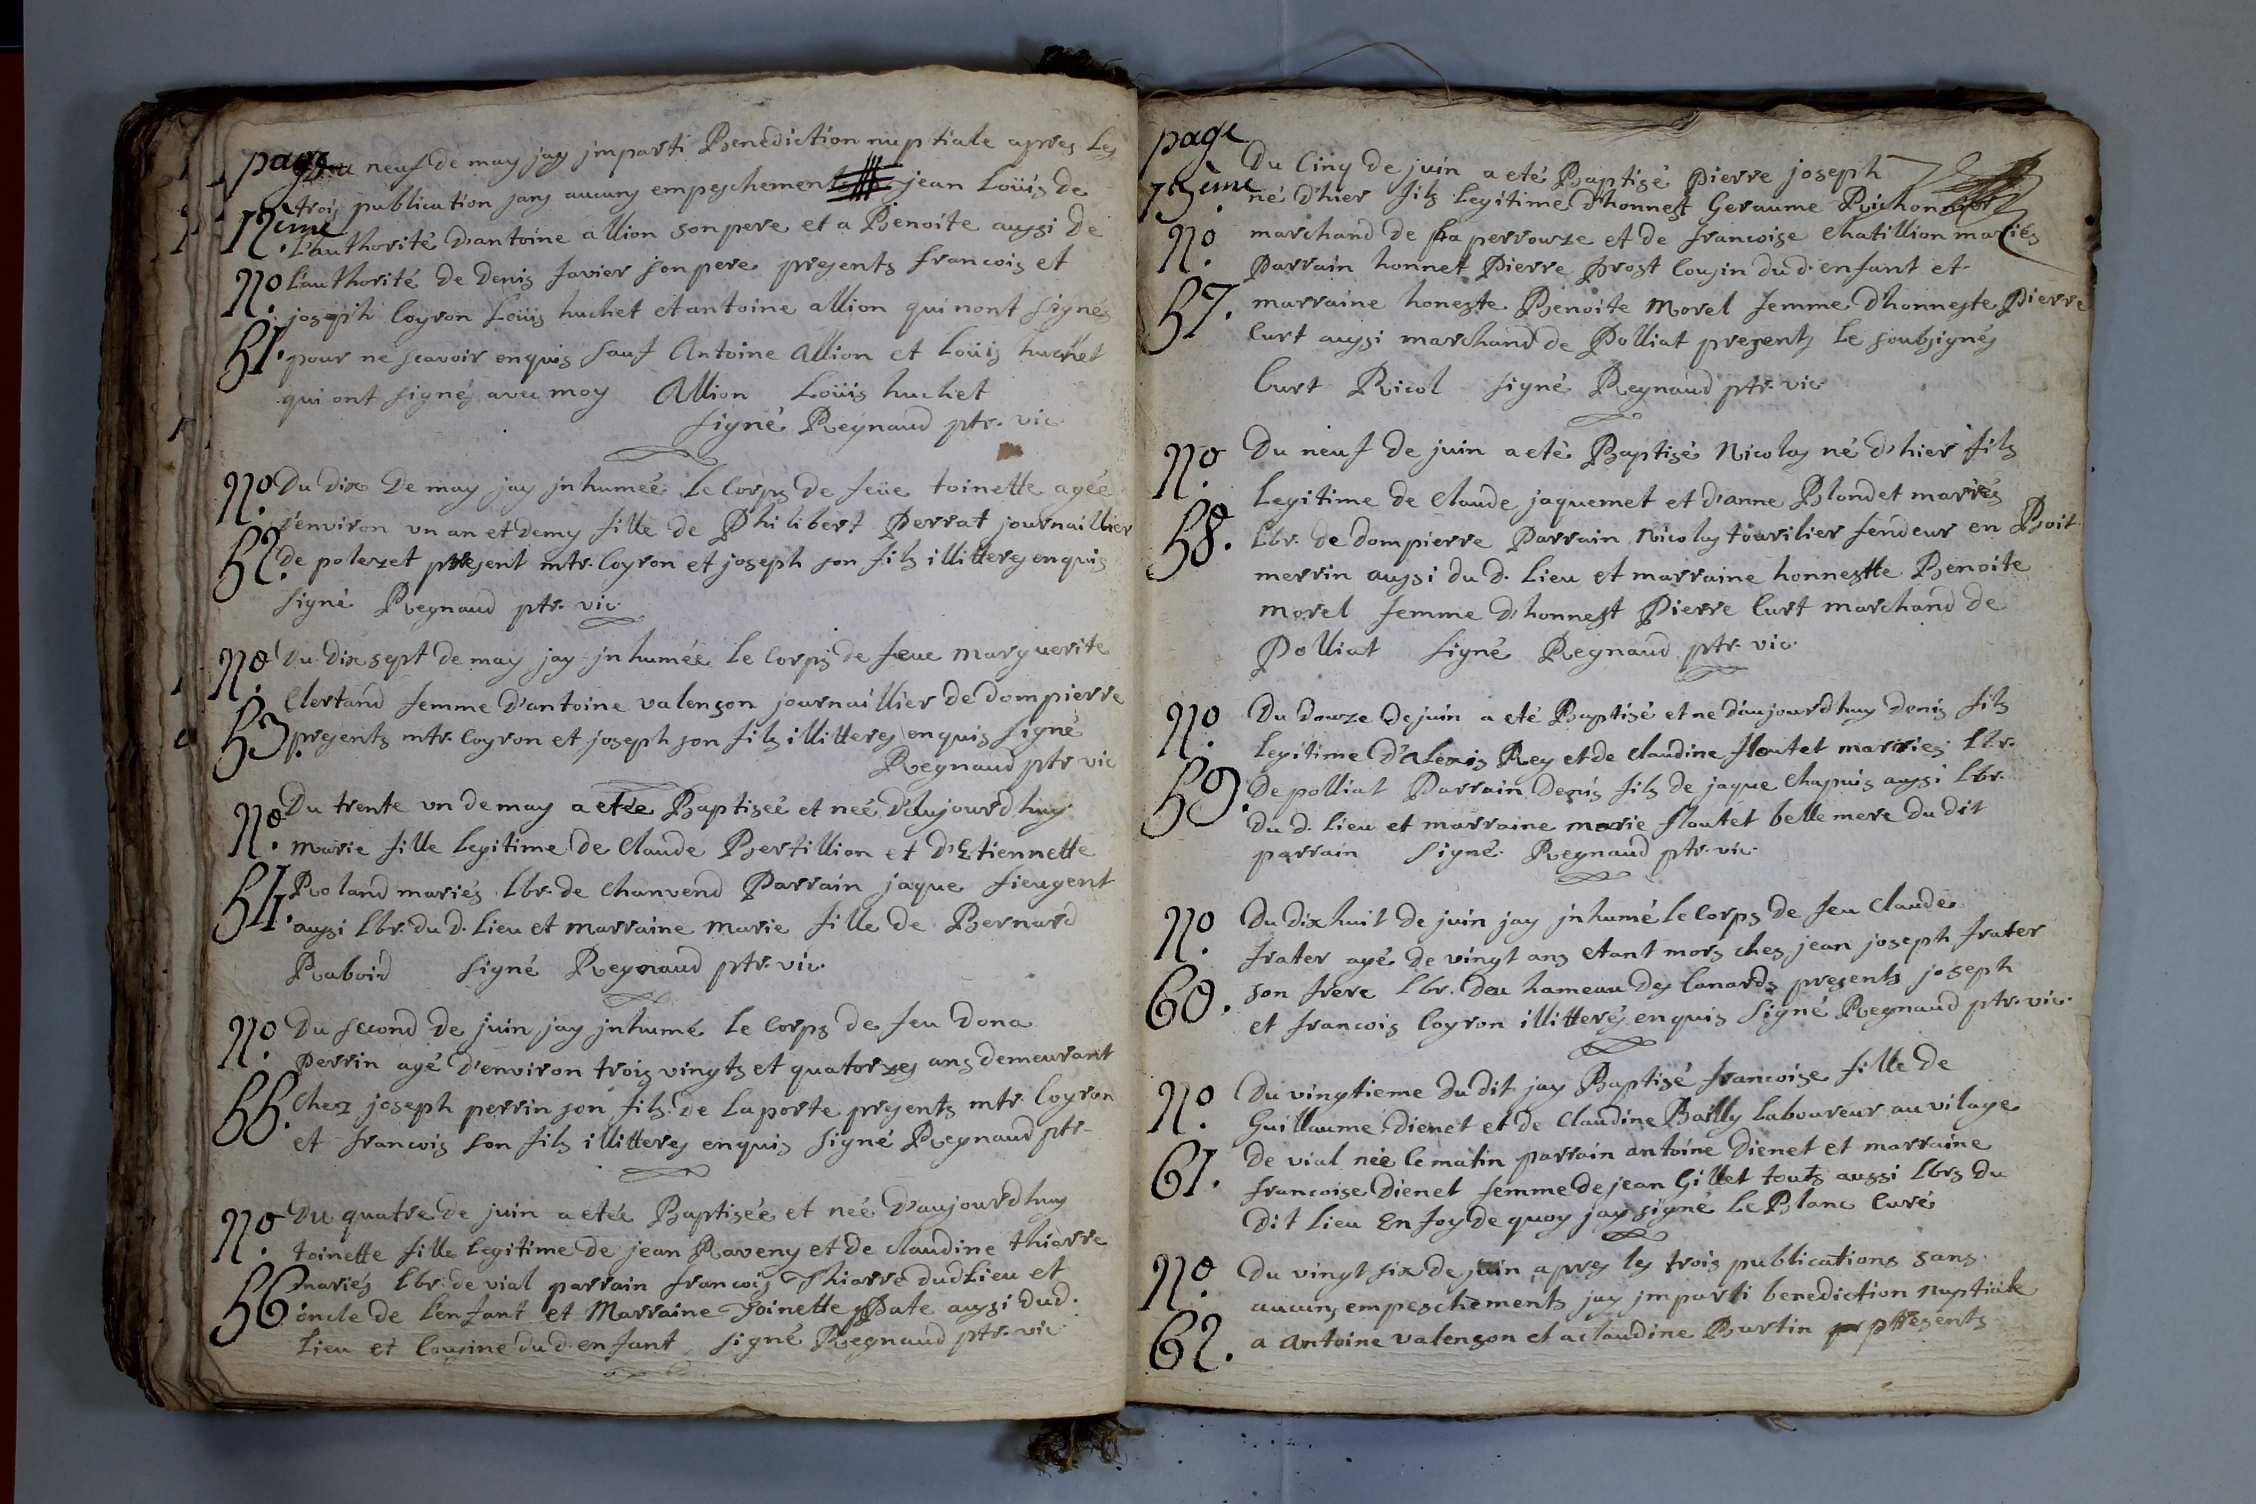 page
12.eme
Du neuf de may jay jmparti Benediction nuptiale apres les
trois publication sans aucuns empeschement jean Loüis de
L'authorité d'antoine allion son pere et a Benoite aussi de
No. 51. L'authorité de Denis Javier son pere presents francois et
joseph Coyron Loüis huchet et antoine allion qui nont signés
pour ne scavoir enquis sauf Antoine Allion et Loüis huchet
qui ont signés avec moy Allion Loüis huchet
signé Regnaud ptr. vic.
No. 52. Du dix de may jay jnhumeé le Corps de feüe toinette agée
d'environ vn an et demy fille de Philibert Perrat journaillier
de polezet present mtr. Coyron et joseph son fils illitteres enquis
signé Regnaud ptr. vic.
No. 53. Du dix sept de may jay jnhumée le Corps de feue marguerite
Clertand femme d'antoine valenson journaillier de dompierre
presents mtr. Coyron et joseph son fils illitteres enquis signé
Regnaud ptr vic
No. 54. Du trente vn de may a etée Baptiseé et neé d'aujourdhuy
marie fille legitime de Claude Bertillion et d'Etiennette
Roland mariés lbr. de Chanvend Parrain jaque sieugent
aussi lbr. du d. lieu et marraine marie fille de Bernard
Raboid signé Regnaud ptr. vic.
No. 55. Du second de juin jay jnhumé le Corps de feu Dona
Perrin agé d'environ trois vingts et quatorzes ans demeurant
Chez joseph perrin son fils de Laporte presents mtr. Coyron
et francois son fils illitteres enquis signé Regnaud ptr-
No. 56. Du quatre de juin a etée Baptisée et neé d'aujourdhuy
toinette fille legitime de jean Raveny et de claudine thiarre
mariés lbr. de vial parrain francois Thiarre dud Lieu et
oncle de l'enfant et Marraine Toinette Pate aussi dud.
Lieu et Cousine dud. enfant signé Regnaud ptr. vic
page
13.eme
No. 57. Du Cinq de juin a eté Baptisé Pierre joseph
né d'hier fils legitime d'honnest Geraume Richonnier
marchand de La perrouze et de francoise chatillion mariés
Parrain honnet Pierre Prost Cousin du d. enfant et
marraine honeste Benoite Morel femme d'honneste Pierre
Curt aussi marchand de Polliat presents le soubsignés
Curt Ricol signé Regnaud ptr. vic
No. 58. Du neuf de juin a eté Baptisé Nicolas né d'hier fils
Legitime de Claude jaquemet et d'anne Blondet mariés
Lbr. de dompierre Parrain Nicolas tourilier fendeur en Boit
merrin aussi du d. Lieu et marraine honnestte Benoite
morel femme d'honnest Pierre Curt marchand de
Polliat signé Regnaud ptr. vic.
No. 59. Du douze de juin a eté Baptisé et ne daujourdhuy Denis fils
Legitime d'Alexis Rey et de claudine floutet marriés lbr.
De polliat Parrain Denis fils de jaque Chapuis aussi lbr.
du d. Lieu et marraine marie floutet belle mere du dit
parrain signé Regnaud ptr. vic.
No. 60. Du dix huit de juin jay jnhumé le Corps de feu Claude
frater agé de vingt ans etant mors ches jean joseph frater
son frere lbr. du hameau des Canards presents joseph
et francois Coyron illitterés enquis signé Regnaud ptr. vic.
No. 61. Du vingtieme du dit jay Baptisé francoise fille de
Guillaume Dienet et de Claudine Bailly laboureur au vilage
De vial née le matin parrain antoine Dienet et marraine
francoise Dienet femme de jean Gillet touts aussi lbrs du
Dit Lieu En foy de quoy jay signé Le Blanc Curé
No. 62. Du vingt six de juin apres les trois publications sans
aucuns empeschements jay jmparti benediction nuptiale
a Antoine valenson et a claudine Burtin presents